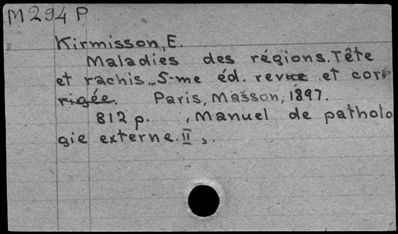 M294P
Kirmisson, E.
Maladies des régions. Tête
et rachis. 5-me éd. revue et cor-
rigée. Paris, Masson, 1897.
812 p. (Manuel de patholo
gie externe. II).